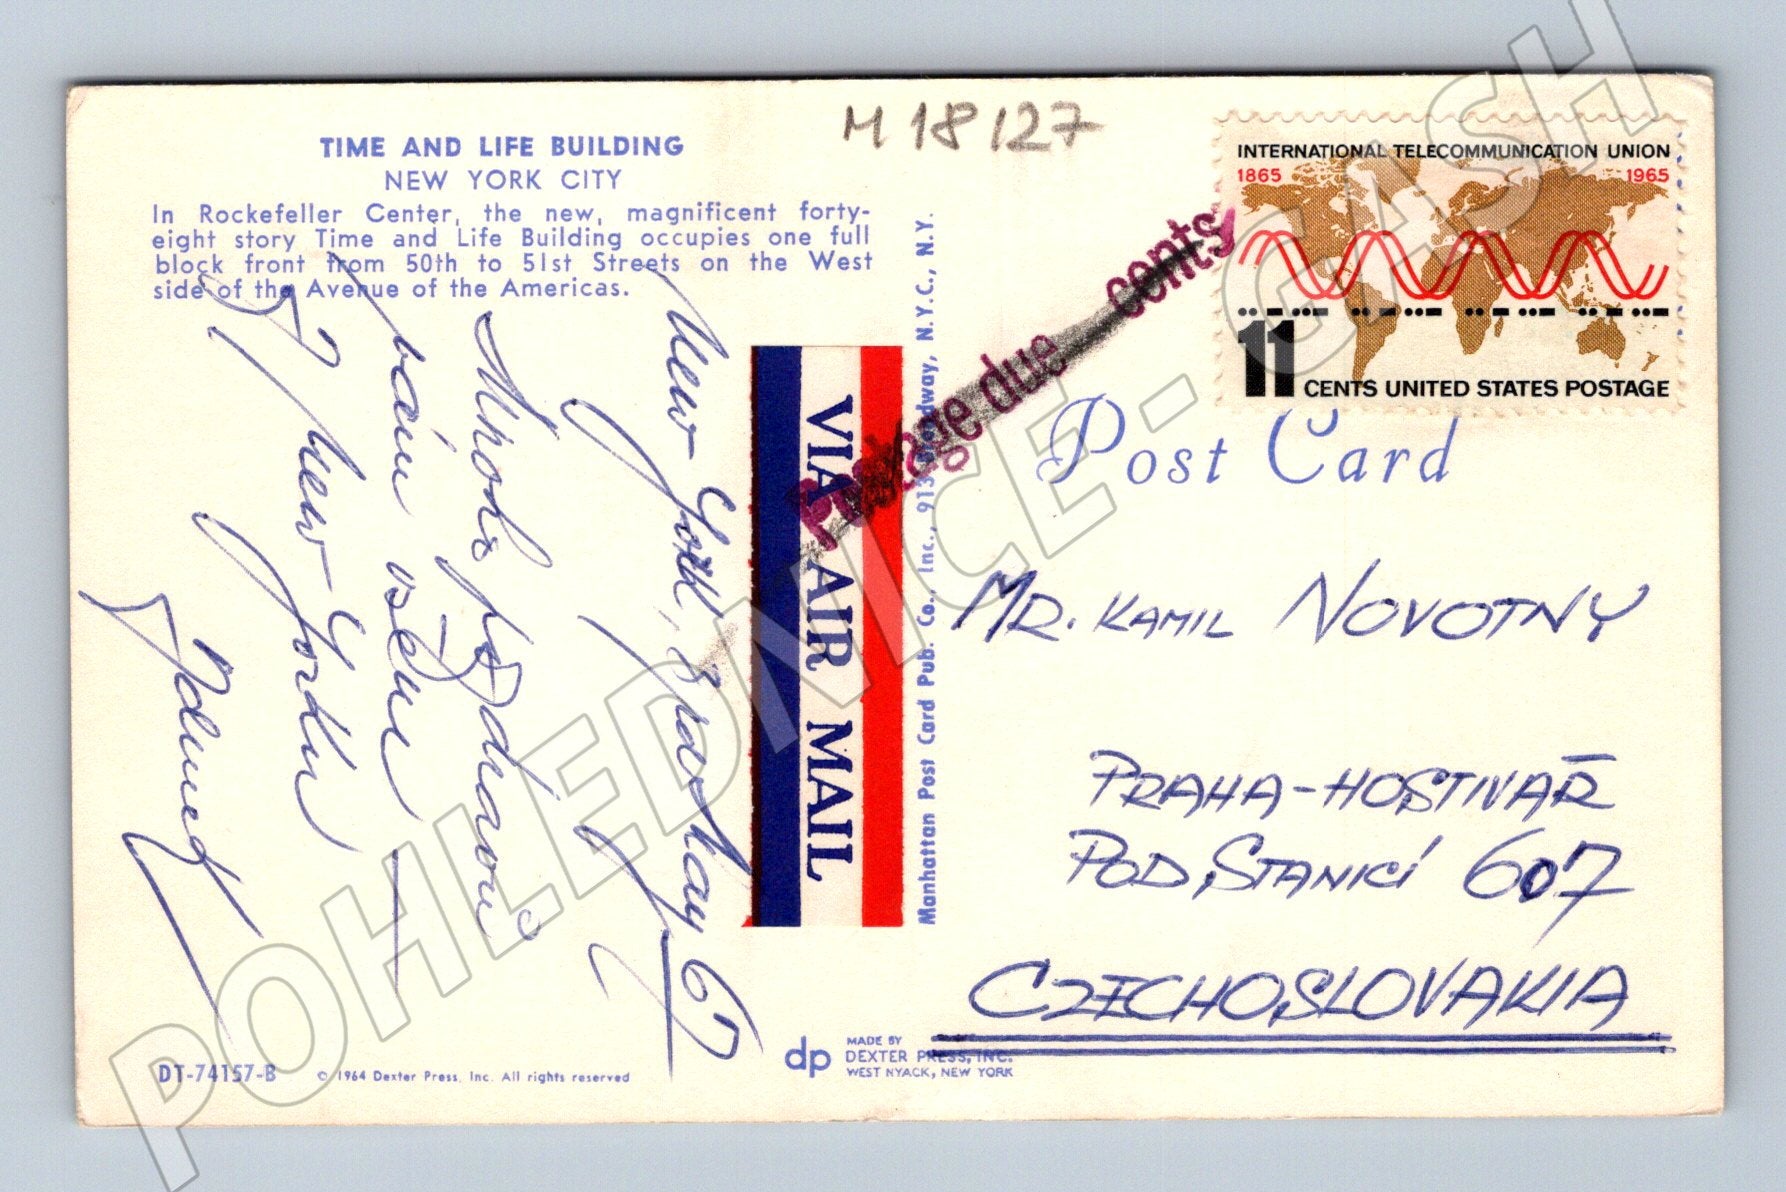 M 18/127
TIME AND LIFE BUILDING
NEW YORK CITY
In Rockefeller Center, the new, magnificent forty-
eight story Time and Life Building occupies one full
block front from 50th to 51st Streets on the West
side of the Avenue of the Americas.
New York, 8
May 67
Mnoho pozdravů
Vám všem
z New Yorku
VIA AIR MAIL
Manhattan Post Card Pub. Co., Inc., 913 Broadway, N.Y.C., N.Y.
Postage due cents
INTERNATIONAL TELECOMMUNICATION UNION
1865 1965
11 CENTS UNITED STATES POSTAGE
Post Card
MR. KAMIL NOVOTNY
PRAHA-HOSTIVAŘ
POD STANICÍ 607
CZECHOSLOVAKIA
DT-74157-B © 1964 Dexter Press, Inc. All rights reserved
dp
MADE BY
DEXTER PRESS, INC.
WEST NYACK, NEW YORK
POHLEDNICE-CASH